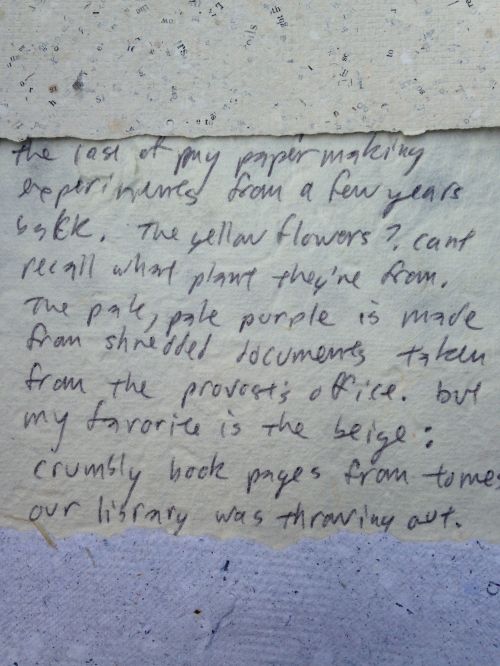 the last of my paper making
experiments from a few years
back. The yellow flowers? cant
recall what plant they're from.
The pale, pale purple is made
from shredded documents taken
from the provost's office. but
my favorite is the beige:
crumbly book pages from tomes
our library was throwing out.